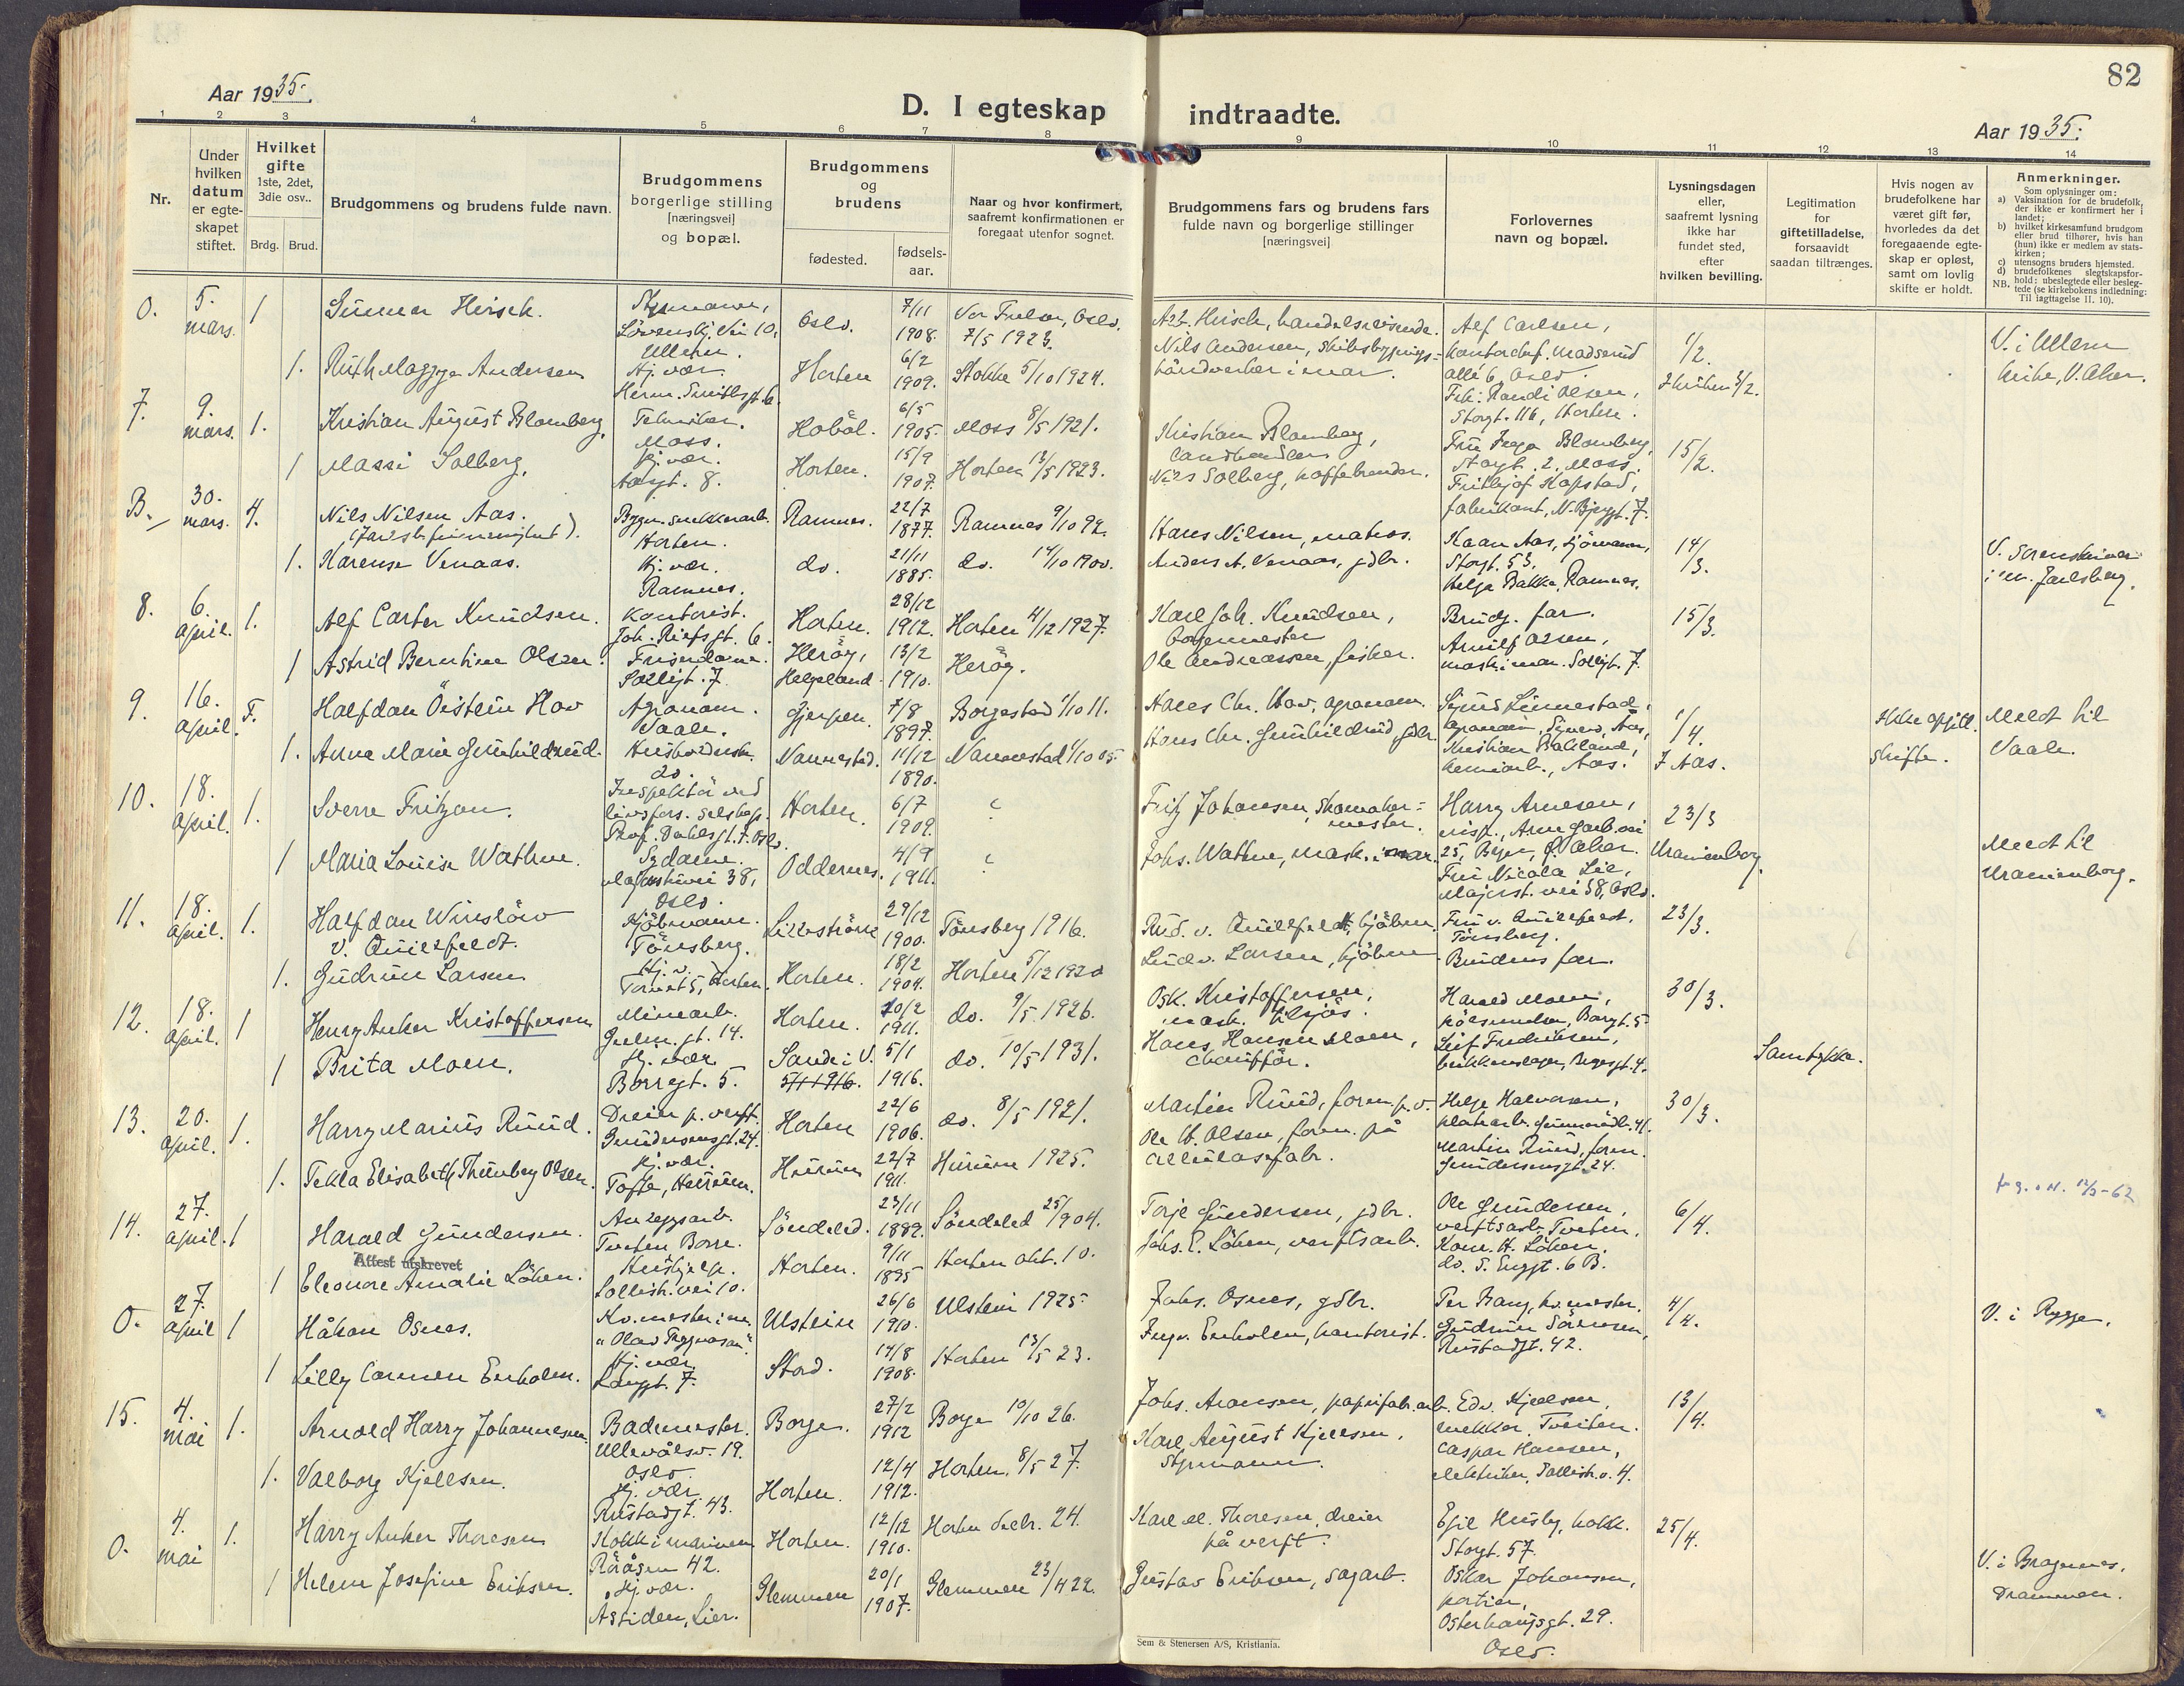 82
Aar 1935.
D. I egteskap indtraadte.
Aar 1935.
1 2 3 4 5 6 7 8 9 10 11 12 13 14
Nr.
Under hvilken datum er egte-skapet stiftet.
Hvilket gifte 1ste, 2det, 3die osv..
Brdg. Brud.
Brudgommens og brudens fulde navn.
Brudgommens borgerlige stilling [næringsvei] og bopæl.
Brudgommens og brudens
fødested.
fødsels-aar.
Naar og hvor konfirmert, saafremt konfirmationen er foregaat utenfor sognet.
Brudgommens fars og brudens fars fulde navn og borgerlige stillinger [næringsvei]
Forlovernes navn og bopæl.
Lysningsdagen eller, saafremt lysning ikke har fundet sted, efter hvilken bevilling.
Legitimation for giftetilladelse, forsaavidt saadan tiltrænges.
Hvis nogen av brudefolkene har været gift før, hvorledes da det foregaaende egte-skap er opløst, samt om lovlig skifte er holdt.
Anmerkninger.
Som oplysninger om:
a) Vaksination for de brudefolk, der ikke er konfirmert her i landet;
b) hvilket kirkesamfund brudgom eller brud tilhører, hvis han (hun) ikke er medlem av stats-kirken;
c) utensogns bruders hjemsted.
d) brudefolkenes slegtskapsfor-hold: ubeslegtede eller besleg-tede (se kirkebokens indledning: NB. Til iagttagelse II. 10).
0. 5. mars. 1 Gunnar Hirsch. Løvenskj. vei 10, Ullern. Oslo. 7/11 1908. Vor Frelser, Oslo. 7/5 1923. handelsreisende. Alf Carlsen, kontorchef. Madserud allé 6, Oslo. 1/2. V. i Ullern kirke, V. Aker.
1. Ruth Maggja Andersen Hj. vær. Herm. Smithsgt. 6. Horten 6/2 1909. Stokke 5/10 1924. Nils Andersen, skibsbygnings-håndverker i mar. Frk. Randi Olsen, Storgt. 116, Horten.
7. 9. mars. 1. Kristian August Blomberg. Tekniker. Moss. Hobøl. 6/5 1905. Moss 8/5 1921. Kristian Blomberg, Landhandler Fru Inga Blomberg, Storgt. 2, Moss. 15/2.
1 Massi Solberg. Hj. vær. 8. Horten. 15/9 1907. Horten 13/5 1923. Nils Solberg, kaffebrender. Frithjof Hopstad, fabrikant, N. Bjergt. 7.
B. 30. mars. 4. Nils Nilsen Aas. Bygn. snekkerarb. Horten. Ramnes. 22/7 1877. Ramnes 9/10 92. Hans Nilsen, matros. Kaan Aas, sjømann, Storgt. 53, 14/3. V. Sorenskriver i Jarlsberg.
1. Karense Venaas. Hj. vær. Ramnes. do. 21/11 1885. do. 14/10 1900. Anders A. Venaas, gdbr. Helge Bakke, Ramnes.
8. 6. april. 1. Alf Carter Knudsen. Kontorist. Joh. Riefsgt. 6. Horten. 28/12 1912. Horten 4/12 1927. Karl Joh. Knudsen, Brudg. far. 15/3.
1 Astrid Berntine Olsen. Frisørdame. Solligt. 7 Herøy, Helgeland 13/2 1910. Herøy. Ole Andreassen, fisker. Arnulf Olsen, Solligt. 7.
9. 16. april. F. Halfdan Øistein Hov Agronom. Vaale. Gjerpen. 7/8 1897. Borgestad 1/10 11. Hans Chr. Hov, agronom. 1/4. skifte. Meldt til Vaale.
1. Anna Marie Gunhildrud. do. Nannestad. 11/12 1890. Nannestad 1/10 05. Hans Chr. Gunhildrud, gdbr. Kristian Bakland, Aas. I Aas.
10. 18. april. 1. Sverre Fritzon. Inspektør ved livsfors. selskap. Prof. Dahlsgt. 7. Oslo. Horten. 6/7 1909. Fritz Johansen, skomaker-mester. Harry Arnesen, insp., Arne Garb. vei 25, V. Aker. 23/3 Uranienborg. Meldt til Uranienborg.
1 Maria Louise Wathne. Sydame. Majorstuvei 38, Oslo. Oddernes. 4/9 1911. Johs. Wathne, mask. i mar. Fru Nicola Lie, Majorst. vei 38, Oslo.
11. 18. april. 1. Halfdan Winsløw v. Quillfeldt. Kjøbmann. Tønsberg. Lillestrøm 29/12 1900. Tønsberg 1916. Rud. v. Quillfeldt, kjøbm. Fru v. Quillfeldt, Tønsberg. 23/3.
1. Gudrun Larsen Hj. v. Tornet 5, Horten. Horten. 18/2 1904. Horten 5/12 1920 Ludv. Larsen, kjøbm. Brudens far.
12. 18. april. 1 Henry Anker Kristoffersen Minearb. gt. 14. Horten. 20/2 1911. do. 9/5 1926. Osk. Kristoffersen, mask. tilsjøs. Harald Moen, pølsemaker, Borgt. 5 30/3.
1 Brita Moen. Hj. vær Borregt. 5. Sande i V. 5/1 1916. 5/1 1916. do. 10/5 1931. Hans Hansen Moen, chauffør. Leif Fredriksen, blikkenslager, Samtykke.
13. 20. april. 1. Harry Marius Ruud. Dreier p. verft. Gundersensgt. 24. Horten 22/6 1906. do. 8/5 1921. Martin Ruud, form. p. v. Helge Halvorsen, platearb. 30/3.
1. Tekla Elisabeth Thunberg Olsen. Hj. vær. Tofte, Hurum. Hurum 22/7 1911. Hurum 1925. Ole H. Olsen, form. på cellulosefabr. Martin Ruud, form. Gundersensgt. 24.
14. 27. april. 1 Harald Gundersen. Anleggsarb. Tveten Borre. Søndeled. 23/11 1889. Søndeled 25/ 1904. Torje Gundersen, gdbr. Ole Gundersen, verftsarb. Tveten, 6/4.
Attest utskrevet
1 Eleonore Amalie Løken. Hushjelp. Sollistr. vei 10. Horten. 9/11 1895 Horten okt. 10. Johs. E. Løken, verftsarb. Korn. H. Løken, do. S. Enggt. 6 B.
0. 27. april 1 Håkon Osnes. Kv.mester i m. "Olav Tryggvason". Ulstein 26/6 1910. Ulstein 1925 Johs. Osnes, gdbr. Per Bang, kv.mester. 4/4. V. i Rygge.
1 Lilly Carmen Enholm. Hj. vær. Langgt. 7. Stord. 14/8 1908. Horten 13/5 23. Ingv. Enholm, kontorist. Gudrun Sørensen, Rustadgt. 42.
15. 4. mai 1. Arnold Harry Johannesen. Bademester. Ullevålsv. 19. Oslo. Borge. 27/2 1912 Borge 10/10 26. Johs. Aronsen, papirfabr.arb. Edv. Kjellsen, snekker, Tveiten. 13/4.
1. Valborg Kjellsen. Hj. vær Rustadgt. 43. Horten. 12/4 1912. Horten. 8/5 27. Karl August Kjellsen, Styrmann. Caspar Hansen, elektriker, Sollistr. v. 4.
0. 4. mai 1. Harry Anker Thoresen Kokk i marinen Røråsen 42. Horten. 12/12 1910. Horten 24. Karl M. Thoresen, dreier på verft. Egil Husby, kokk. Storgt. 57. 25/4. V. i Bragernes, Drammen.
1 Helene Josefine Eriksen. Hj. vær. Astiden, Lier. Glemmen 20/1 1907. Glemmen 23/4 22. Gustav Eriksen, sagarb. Oskar Johansen, portier, Osterhausgt. 29. Oslo.
Sem & Stenersen A/S, Kristiania.